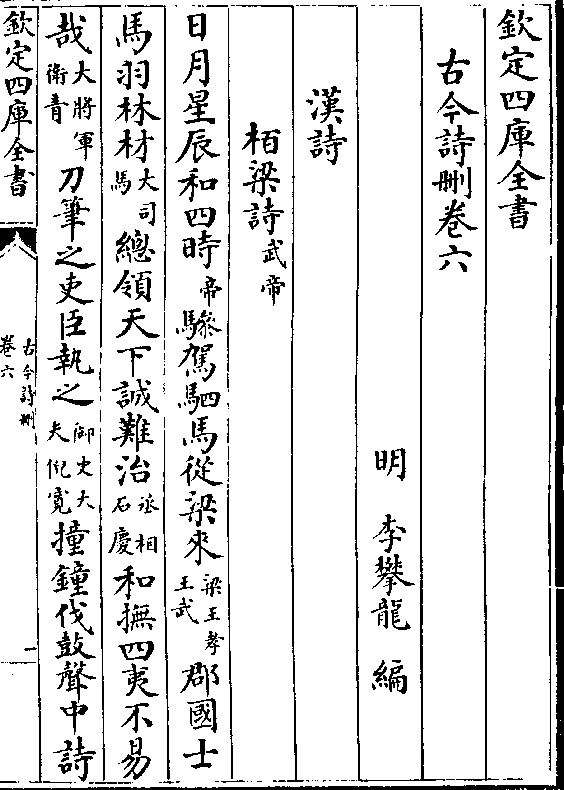 欽定四庫全書
古今詩刪卷六
明 李攀龍 編
漢詩
栢梁詩武帝
日月星辰和四時帝驂駕駟馬從梁來梁王孝王武郡國士
馬羽林材大司馬總領天下誠難治丞相石慶和撫四夷不易
哉大將軍衛青刀筆之吏臣執之御史大夫倪寬撞鐘伐鼓聲中詩
欽定四庫全書
古今詩刪
卷六
一